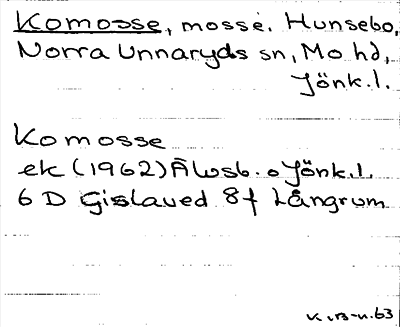 Komosse, mosse. Hunsebo,
Norra Unnaryds sn, Mo hd,
Jönk.l.
Komosse
ek (1962) Älvsb. o Jönk.l.
6 D Gislaved 8f Långrum